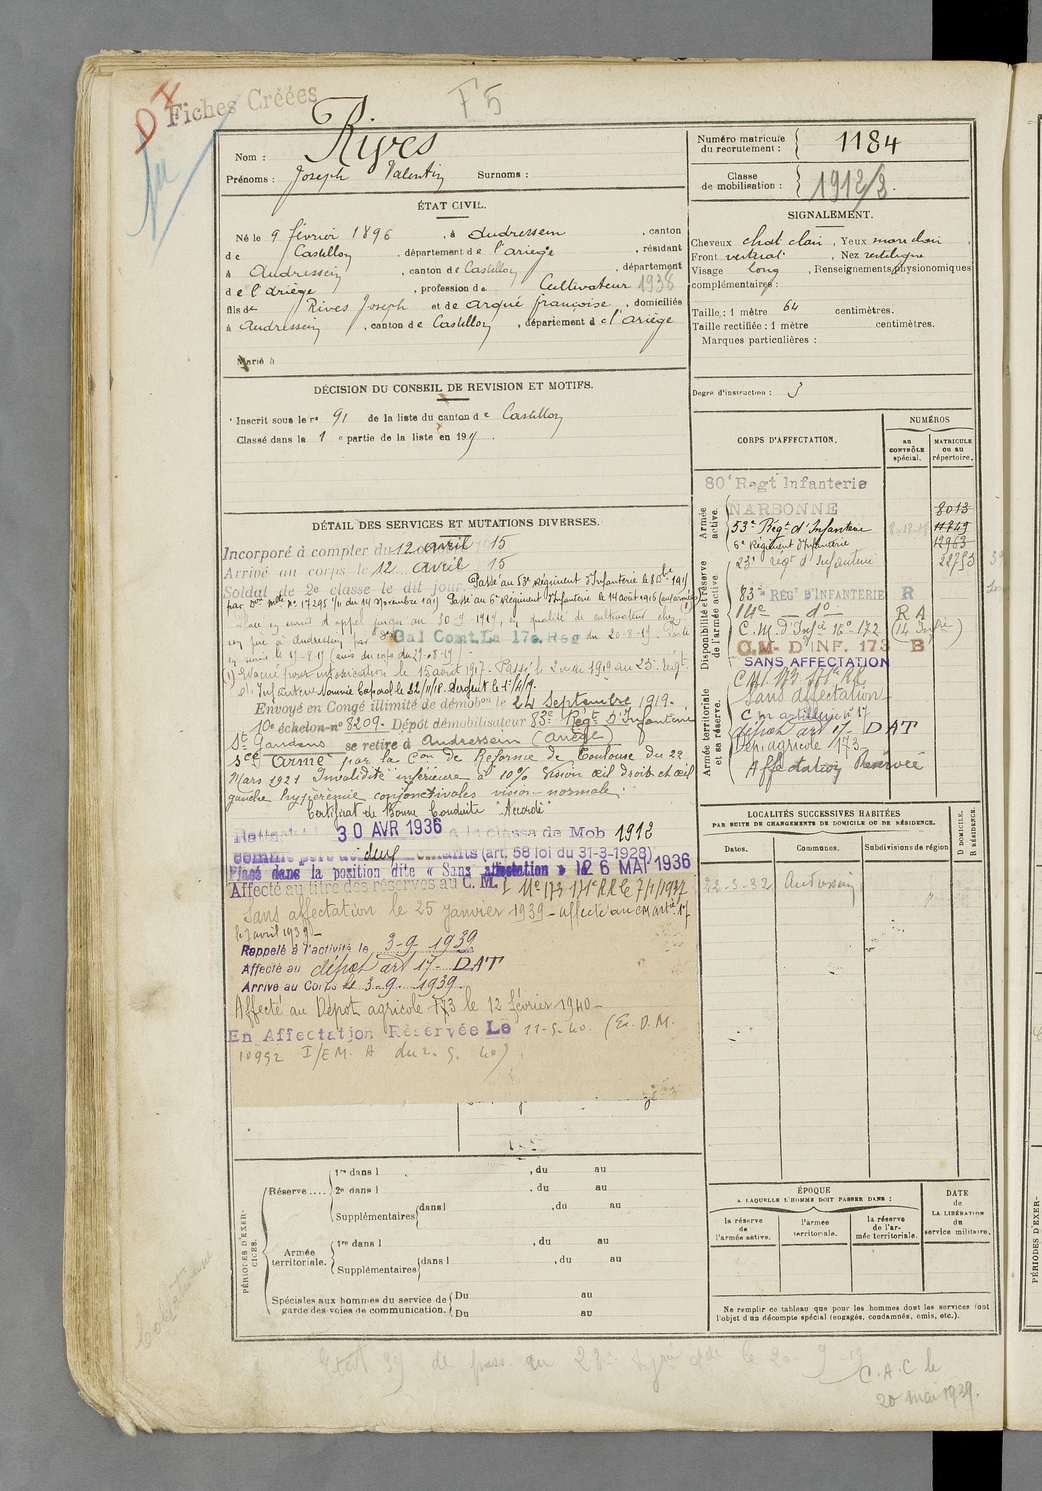 D I
Fiches Créées
F5
Nom : Rives
Prénoms : Joseph Valentin Surnoms :
Numéro matricule du recrutement : 1184
Classe de mobilisation : 1912/2.
ÉTAT CIVIL.
Né le 9 février 1896, à Audressein, canton
de Castillon, département de l'ariège, résidant
à Audressein, canton de Castillon, département
de l'ariège, profession de Cultivateur 1938
fils de Rives Joseph et de Arqué françoise, domiciliés
à Audressein, canton de Castillon, département de l'ariège
Marié à
SIGNALEMENT.
Cheveux chat clair, Yeux marr clair
Front vertical, Nez rectiligne
Visage long, Renseignements physionomiques
complémentaires :
Taille : 1 mètre 64 centimètres.
Taille rectifiée : 1 mètre centimètres.
Marques particulières :
Degré d'instruction : 3
DÉCISION DU CONSEIL DE REVISION ET MOTIFS.
Inscrit sous le no 91 de la liste du canton de Castillon
Classé dans la 1e partie de la liste en 191
CORPS D'AFFECTATION.
NUMÉROS
au CONTRÔLE spécial.
MATRICULE ou au répertoire.
Armée active.
80e Regt Infanterie
NARBONNE 8013
53e Régt d'Infanterie 11749
6e Régiment d'Infanterie 12963
23e regt d'Infanterie 22753
Disponibilité et réserve de l'armée active.
83e REGt D'INFANTERIE R
14e do R A
C.M. d'Infie 16o-172 (14 Infie)
C.M. D'INF. 173 B
SANS AFFECTATION
C.M.I. 173 171e RR
Armée territoriale et sa réserve.
Sans affectation
C m artillerie no 17
dépôt art 17 DAT
Dépôt agricole 173
Affectation Réservée
DÉTAIL DES SERVICES ET MUTATIONS DIVERSES.
Incorporé à compter du 12 avril 15
Arrivé au corps le 12 avril 15
Soldat de 2e classe le dit jour. Passé au 53e Régiment d'Infanterie le
par no 17295 du 14 Novembre 191 Passé au 6e Régiment d'Infanterie le 14 août 1916 (aux armées)
d'appel jusqu'au 30-9-1917, en qualité de cultivateur chez
à Audressein par Gal Comt La 17e Reg du 20-8-19. Passé
(1) Evacué pour intoxication le 15 août 1917. Passé le 2 mai 1919 au 23e régt
d'Infanterie Nommé Caporal le 22/11/18. Sergent le 1er/4/19.
Envoyé en Congé illimité de démobon le 24 Septembre 1919.
10e échelon no 8209. Dépôt démobilisateur 83e Régt D'Infanterie
St Gaudens se retire à Audressein (Ariège)
Scé Armé par la Con de Réforme de Toulouse du 22
Mars 1921 Invalidité inférieure à 10% Vision œil droit et œil
gauche hyperémie conjonctivales vision normale.
Certificat de Bonne Conduite "Accordé"
Rattaché 30 AVR 1936 à la classe de Mob 1912
comme père de deux enfants (art. 58 loi du 31-3-1928)
Placé dans la position dite « Sans affectation » le 26 MAI 1936
Affecté au titre des réserves au C. M. I No 173 171e RR le 7/1/1937
Sans affectation le 25 janvier 1939 - affecté au CM artie 17
le 3 avril 1939 -
Rappelé à l'activité le 3-9 1939
Affecté au dépôt art 17 DAT
Arrivé au Corps le 3-9-1939.
Affecté au Dépôt agricole 173 le 12 février 1940 -
En Affectation Réservée Le 11-5-40. (Ex. D.M.
10992 I/EM. A du 2. 5. 40)
LOCALITÉS SUCCESSIVES HABITÉES
PAR SUITE DE CHANGEMENTS DE DOMICILE OU DE RÉSIDENCE.
Dates. Communes. Subdivisions de région D DOMICILE. R RÉSIDENCE.
22-3-32 Audressein
PÉRIODES D'EXERCICES.
Réserve ....
1re dans l , du au
2e dans l , du au
Supplémentaires dans l , du au
Armée territoriale.
1re dans l , du au
Supplémentaires dans l , du au
Spéciales aux hommes du service de garde des voies de communication.
Du au
Du au
ÉPOQUE
A LAQUELLE L'HOMME DOIT PASSER DANS :
la réserve de l'armée active.
l'armée territoriale.
la réserve de l'armée territoriale.
DATE de LA LIBÉRATION du service militaire.
Ne remplir ce tableau que pour les hommes dont les services font
l'objet d'un décompte spécial (engagés, condamnés, omis, etc.).
C.A.C le
20 mai 1939.
PÉRIODES D'EXER-